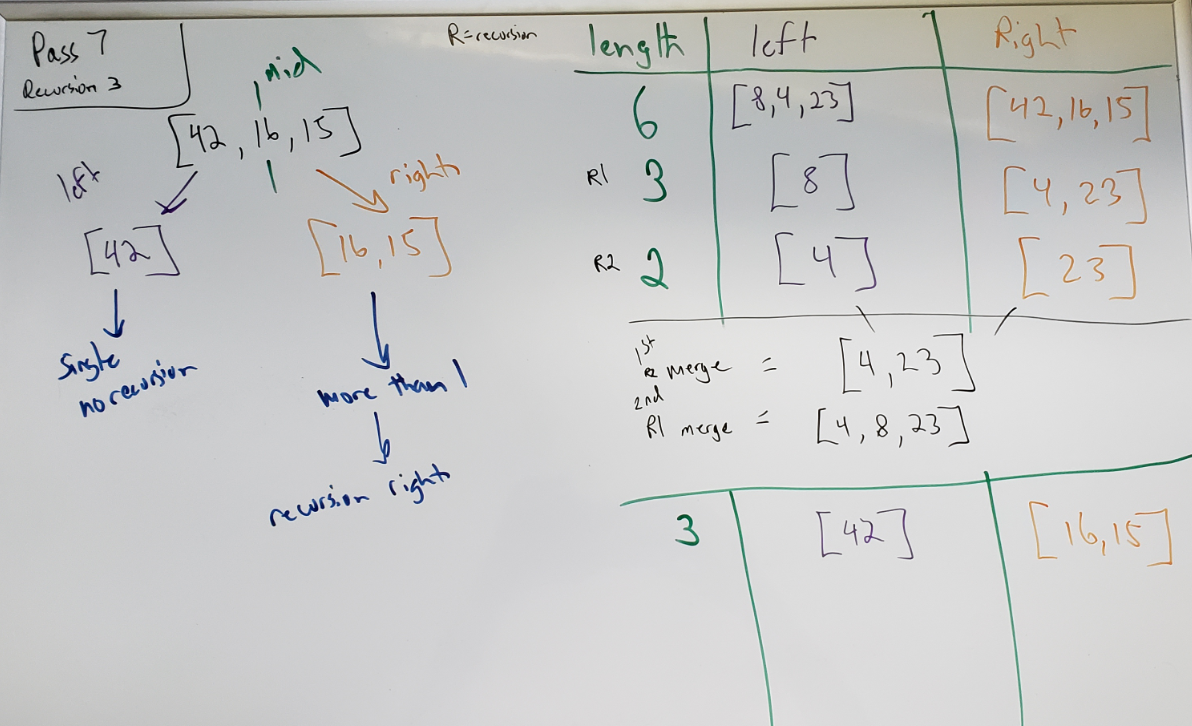 Pass 7
Recursion 3
mid
[42, 16, 15]
1
left
right
[42]
[16, 15]
Single
no recursion
more than 1
recursion right
R=recursion
length left Right
6 [8,4,23] [42,16,15]
R1 3 [8] [4,23]
R2 2 [4] [23]
1st
R2 merge = [4,23]
2nd
R1 merge = [4,8,23]
3 [42] [16,15]